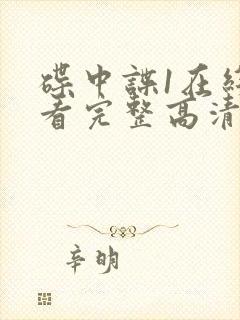 碟中諜1在
看完整高清
辛明